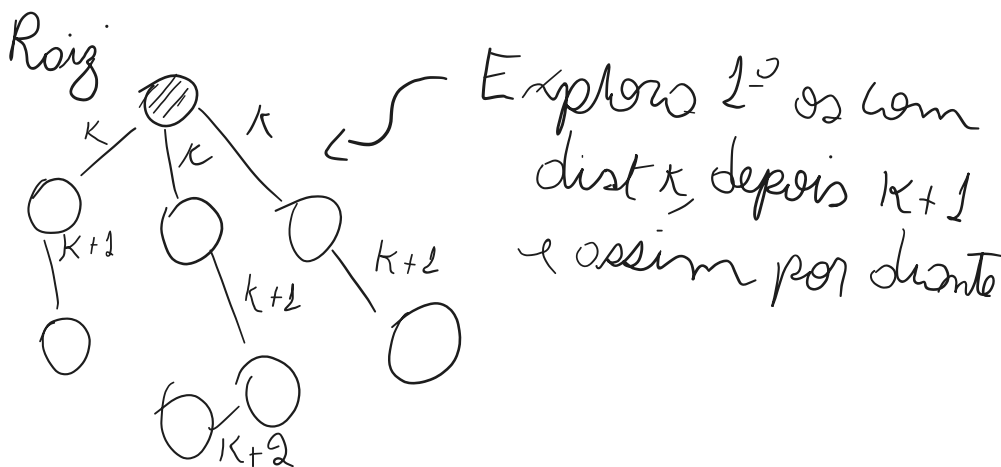 Raiz
K
K
K
K+1
K+1
K+1
K+2
Exploro 1º os com
dist K, depois K+1
e assim por diante